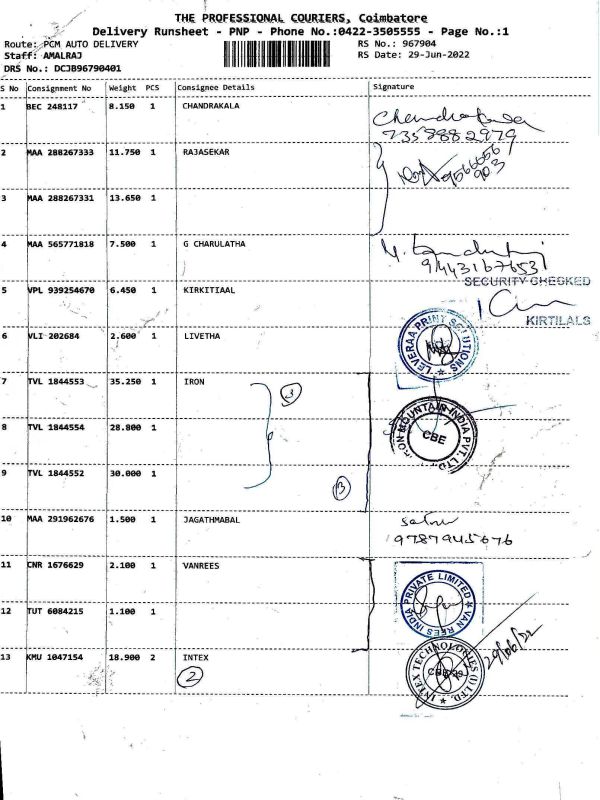 THE PROFESSIONAL COURIERS, Coimbatore
Delivery Runsheet - PNP - Phone No.:0422-3505555 - Page No.:1
Route: PCM AUTO DELIVERY RS No.: 967904
Staff: AMALRAJ RS Date: 29-Jun-2022
DRS No.: DCJB96790401
S No Consignment No Weight PCS Consignee Details Signature
1 BEC 248117 8.150 1 CHANDRAKALA
7358882979
2 MAA 288267333 11.750 1 RAJASEKAR
3 MAA 288267331 13.650 1
4 MAA 565771818 7.500 1 G CHARULATHA
SECURITY CHECKED
5 VPL 939254670 6.450 1 KIRKITIAAL
KIRTILALS
6 VLI 202684 2.600 1 LIVETHA
LEVERAA PRINT SOLUTIONS
7 TVL 1844553 35.250 1 IRON
3
8 TVL 1844554 28.800 1
IRON MOUNTAIN INDIA PVT. LTD
CBE
9 TVL 1844552 30.000 1
3
10 MAA 291962676 1.500 1 JAGATHMBAL
9787945676
11 CNR 1676629 2.100 1 VANREES
VAN REES INDIA PRIVATE LIMITED
12 TUT 6084215 1.100 1
13 KMU 1047154 18.900 2 INTEX
2
INTEX TECHNOLOGIES (I) LTD.
29/06/22